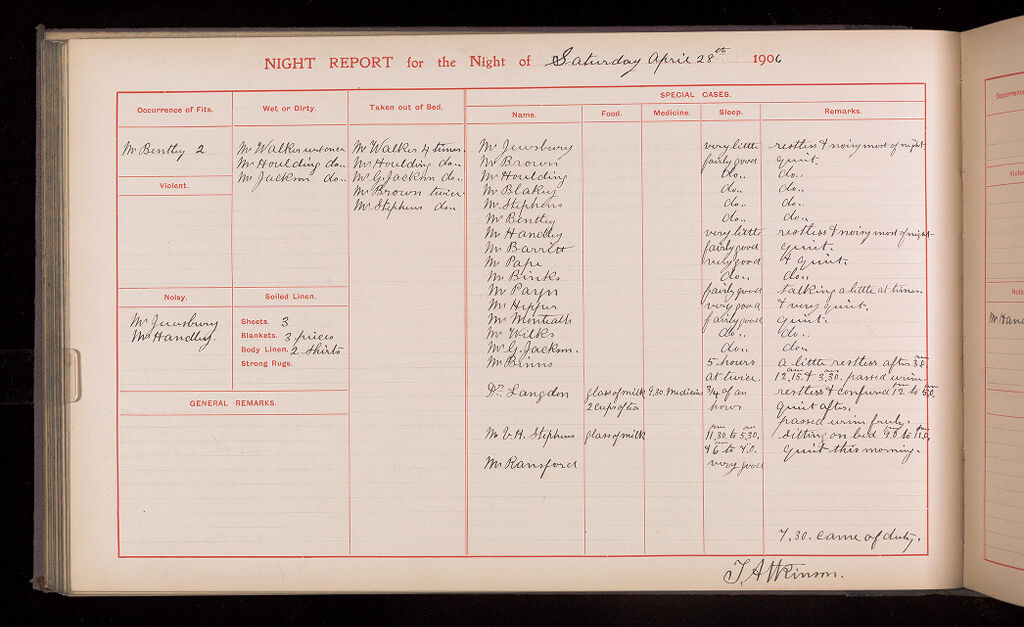 NIGHT REPORT for the Night of Saturday April 28th 1906
Occurrence of Fits.
Mr Bentley 2
Violent.
Noisy.
Mr Jewsbury
Mr Handley.
Wet or Dirty.
Mr Walker wet once
Mr Houlding do..
Mr Jackson do..
Soiled Linen.
Sheets. 3
Blankets. 3 pieces
Body Linen. 2 Shirts
Strong Rugs.
GENERAL REMARKS.
Taken out of Bed.
Mr Walker 4 times.
Mr Houlding do..
Mr G. Jackson do..
Mr Brown twice.
Mr Stephens do..
SPECIAL CASES.
Name. Food. Medicine. Sleep. Remarks.
Mr Jewsbury very little restless & noisy most of night.
Mr Brown fairly good quiet.
Mr Houlding do.. do..
Mr Blakey do.. do..
Mr Stephens do.. do..
Mr Bentley do.. do..
Mr Handley very little restless & noisy most of night.
Mr Barrett fairly good quiet.
Mr Pape very good & quiet.
Mr Binks do.. do..
Mr Payn fairly good talking a little at times.
Mr Hipper very good & very quiet.
Mr fairly good quiet.
Mr Wilks do.. do..
Mr G. Jackson. do.. do..
Mr Binns 5 hours a little restless after 3 am
at twice. 12.15 am & 3.30. am passed urine
Dr. Langdon glass of milk 9.30. Medicine 3/4 of an restless & confused 12 to 5.0. am
2 cups of tea hour quiet after.
passed urine freely.
Mr V. H. Stephens glass of milk 11.30. pm to 5.30. am sitting on bed 9.0 to 11.0. pm
& 6 to 7.0. quiet this morning.
Mr Ransford very good
7.30. came of duty.
T. Atkinson.
Mr Hand